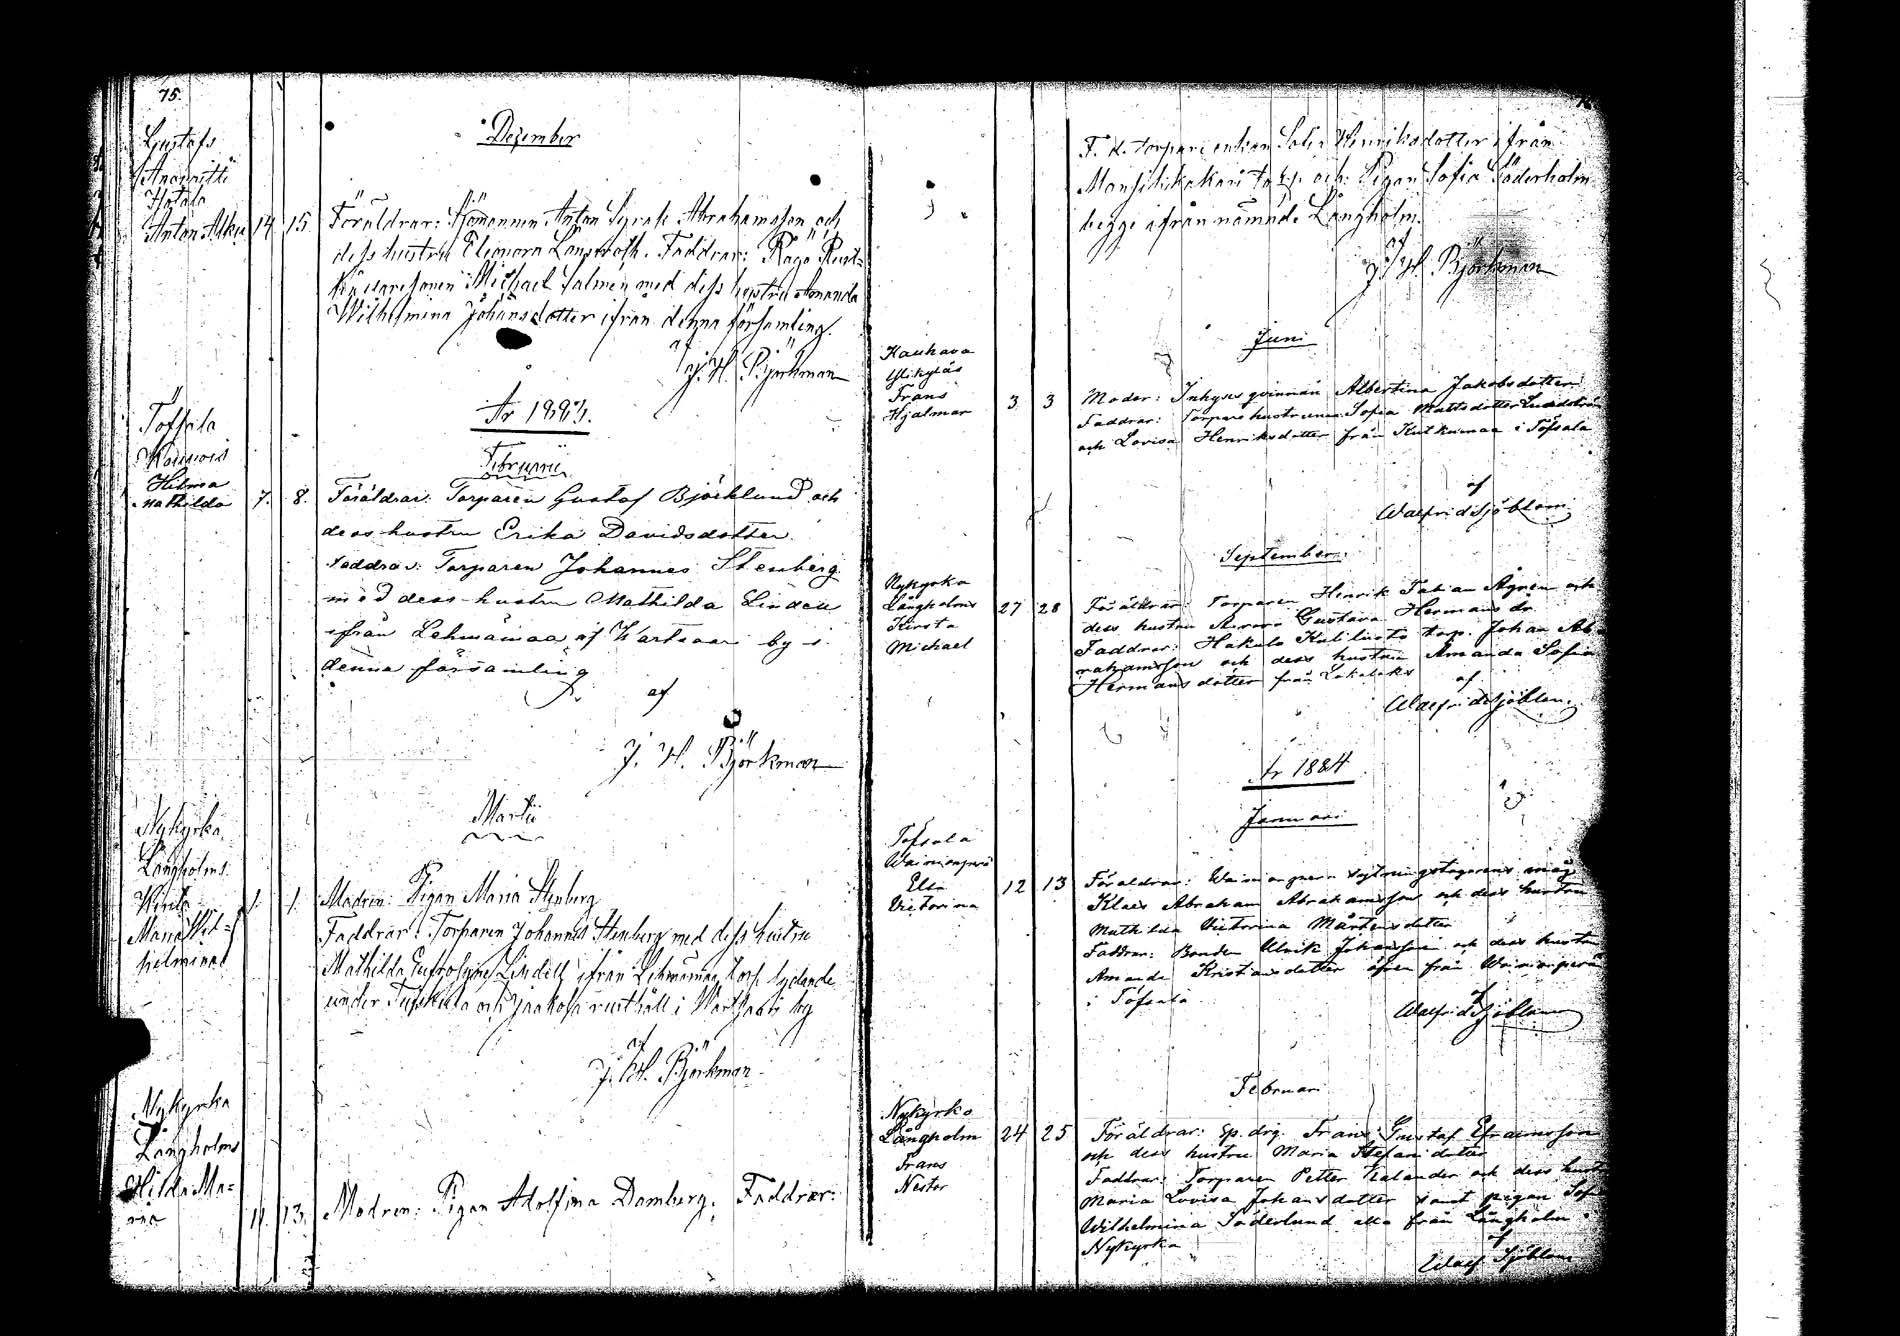 75.
Dezember
Gustafs
Anavitti
Hotala
Anton Alku 14 15. Föräldrar: Sjömannen Anton Syrak Abrahamsson och
dess hustru Eleonora Faddrar:
Michael Salmén med dess hustru Amanda
Wilhelmina Johansdotter ifrån denna församling.
af
J. H. Björkman
År 1883.
Februarii
Töfsala
Hilma
Mathilda 7. 8. Föräldrar: Torparen Gustaf Björklund och
dess hustru Erika Davidsdotter.
Faddrar: Torparen Johannes Stenberg
med dess hustru Mathilda Lindell
ifrån Lehmämaa af Wartsaari by i
denna församling
af
J. H. Björkman
Martii
Nykyrka
Långholms
Maria Wil=
helmina 1. 1. Modren: Pigan Maria Stenberg
Faddrar: Torparen Johannes Stenberg med dess hustru
Mathilda Eufrosyne Lindell ifrån Lehmämaa torp lydande
under och Jaakola rusthåll i Wartsaari by
af
J. H. Björkman
Nykyrka
Långholms
Hilda Ma=
ria 11. 13. Modren: Pigan Adolfina Damberg. Faddrar:
F. d. torpari enkan Henriksdotter ifrån
torp och Pigan Sofia Söderholm
begge ifrån nämnde Långholm.
af
J. H. Björkman
Juni
Kauhava
Ylikylä
Frans
Hjalmar 3 3 Moder: Inhyses qvinnan Albertina Jakobsdotter
Faddrar: Torpare hustrurna Sofia Mattsdotter
och Lovisa Henriksdotter från Kutkumaa i Töfsala
af
Walfrid Sjöblom
September
Nykyrka
Långholms
Kirsta
Michael 27 28 Föräldrar: Torparen Henrik Fabian Ågren och
dess hustru Aurora Gustava Hermans dr.
Faddrar: Hakula torp. Johan Ab=
rahamsson och dess hustru Amanda Sofia
Hermansdotter från Lokalaks
af
Walfrid Sjöblom
År 1884
Januari
Töfsala
Wainionperä
Elsa
Victorina 12 13 Föräldrar: Wainionperä måg
Klaes Abraham Abrahamsson och dess hustru
Mathilda Victorina Mårtensdotter
Faddrar: Bonden Ulrik Johansson och dess hustru
Amanda Kristiansdotter äfven från Wainionperä
i Töfsala
af
Walfrid Sjöblom
Februari
Nykyrko
Långholm
Frans
Nestor 24 25 Föräldrar: Sp. drg. Frans Gustaf Efraimsson
och dess hustru Maria Stefansdotter
Faddrar: Torparen Petter Kalander och dess hustru
Maria Lovisa Johansdotter samt pigan
Wilhelmina Söderlund alla från Långholm i
Nykyrka
af
Walf Sjöblom